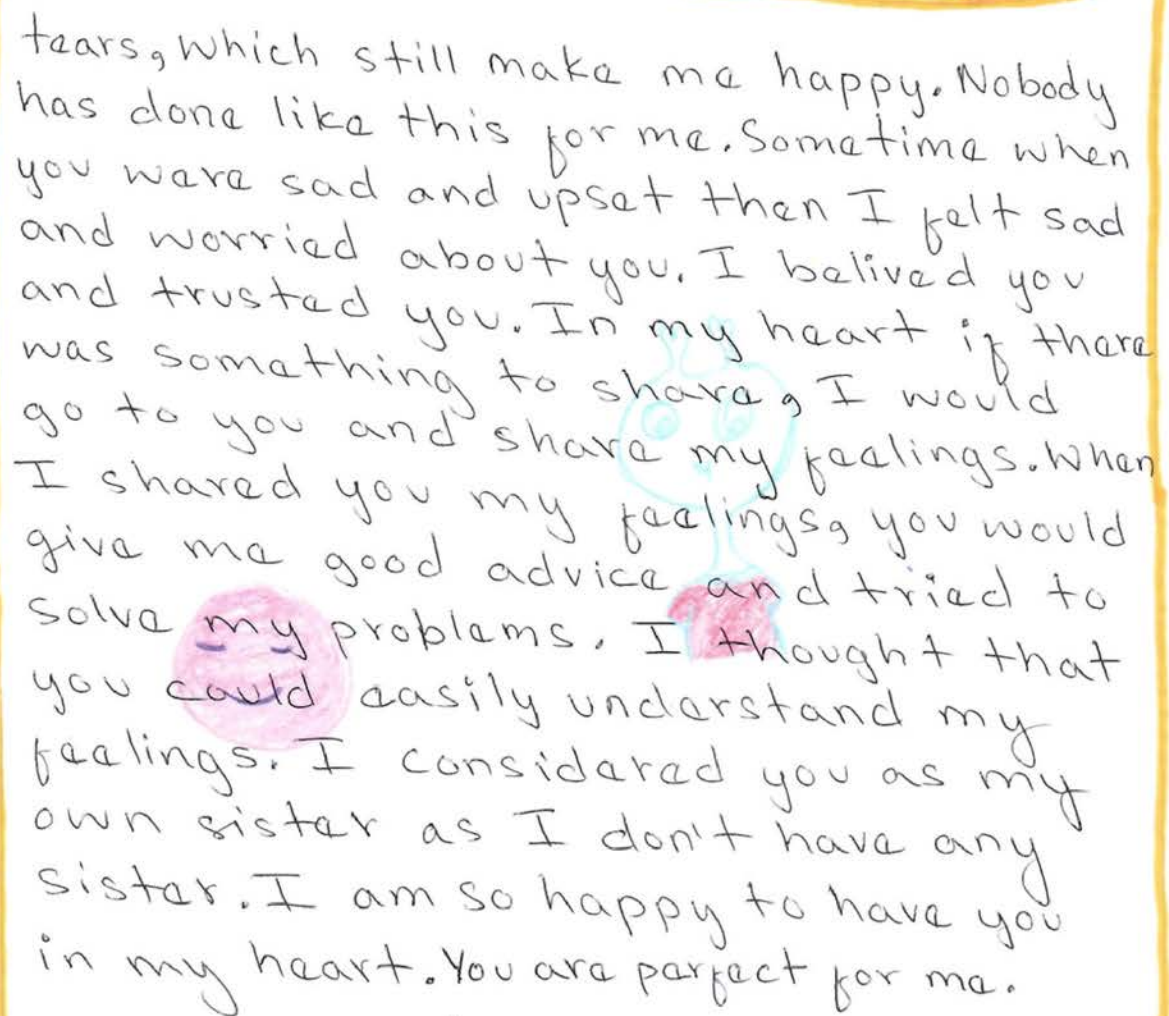 tears, which still make me happy. Nobody
has done like this for me. Sometime when
you were sad and upset then I felt sad
and worried about you. I belived you
and trusted you. In my heart if there
was something to share, I would
go to you and share my feelings. When
I shared you my feelings, you would
give me good advice and tried to
solve my problems. I thought that
you could easily understand my
feelings. I considered you as my
own sister as I don't have any
sister. I am so happy to have you
in my heart. You are perfect for me.